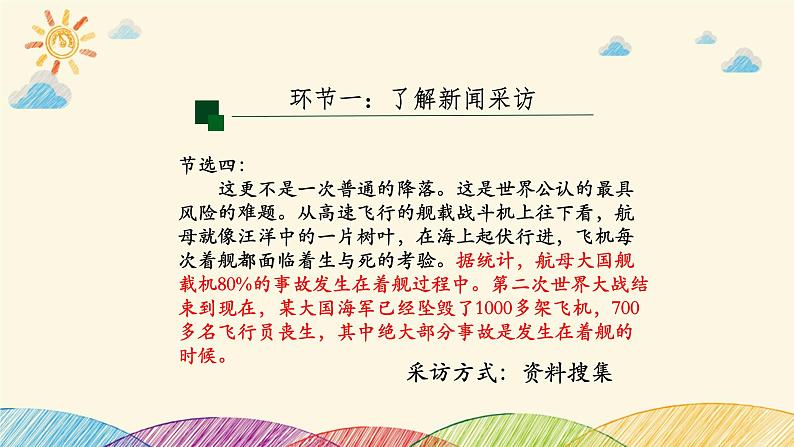 环节一：了解新闻采访
节选四：
这更不是一次普通的降落。这是世界公认的最具
风险的难题。从高速飞行的舰载战斗机上往下看，航
母就像汪洋中的一片树叶，在海上起伏行进，飞机每
次着舰都面临着生与死的考验。据统计，航母大国舰
载机80%的事故发生在着舰过程中。第二次世界大战结
束到现在，某大国海军已经坠毁了1000多架飞机，700
多名飞行员丧生，其中绝大部分事故是发生在着舰的
时候。
采访方式：资料搜集